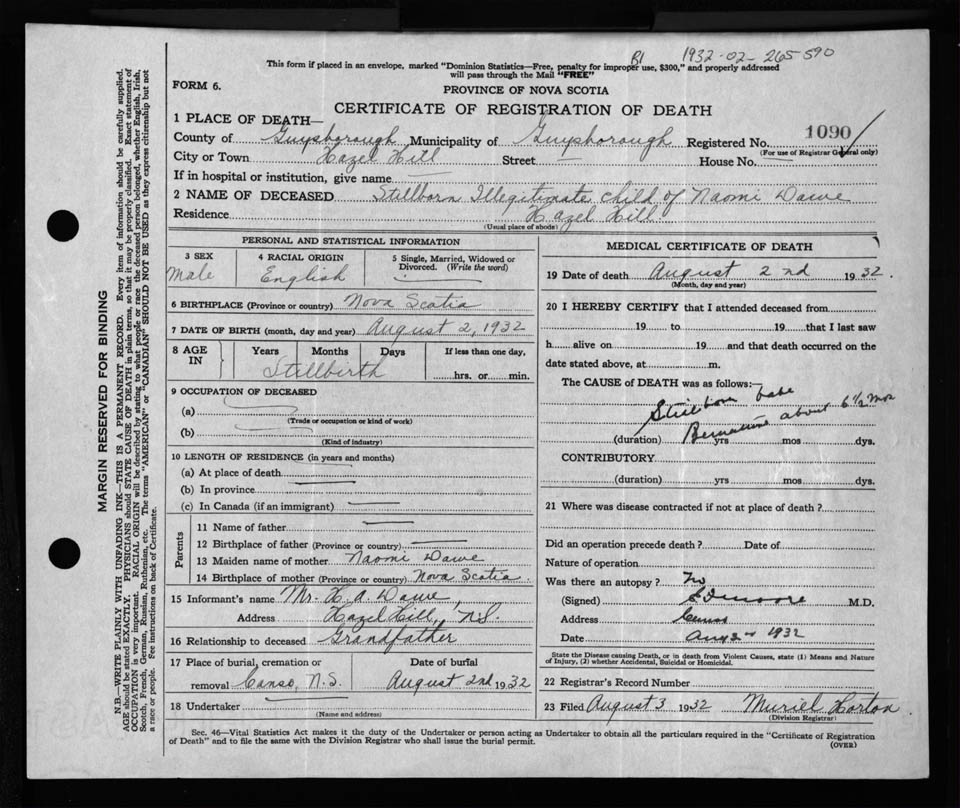 B1 1932-02-265-590
This form if placed in an envelope, marked "Dominion Statistics—Free, penalty for improper use, $300," and properly addressed
will pass through the Mail "FREE"
FORM 6.
PROVINCE OF NOVA SCOTIA
CERTIFICATE OF REGISTRATION OF DEATH
1 PLACE OF DEATH—
County of Guysborough Municipality of Guysborough Registered No. 1090
(For use of Registrar General only)
City or Town Hazel Hill Street — House No. —
If in hospital or institution, give name —
2 NAME OF DECEASED Stillborn Illegitimate child of Naomi Dawe
Residence Hazel Hill
(Usual place of abode)
PERSONAL AND STATISTICAL INFORMATION
3 SEX 4 RACIAL ORIGIN 5 Single, Married, Widowed or
Divorced. (Write the word)
Male English
6 BIRTHPLACE (Province or country) Nova Scotia
7 DATE OF BIRTH (month, day and year) August 2, 1932
8 AGE IN Years Months Days If less than one day,
Stillbirth hrs. or min.
9 OCCUPATION OF DECEASED
(a)
(Trade or occupation or kind of work)
(b)
(Kind of industry)
10 LENGTH OF RESIDENCE (in years and months)
(a) At place of death
(b) In province
(c) In Canada (if an immigrant)
Parents
11 Name of father
12 Birthplace of father (Province or country)
13 Maiden name of mother Naomi Dawe
14 Birthplace of mother (Province or country) Nova Scotia
15 Informant's name Mr. H. A. Dawe
Address Hazel Hill, N.S.
16 Relationship to deceased Grandfather
17 Place of burial, cremation or Date of burial
removal Canso, N.S. August 2nd 1932
18 Undertaker
(Name and address)
MEDICAL CERTIFICATE OF DEATH
19 Date of death August 2nd 1932.
(Month, day and year)
20 I HEREBY CERTIFY that I attended deceased from
19 to 19 that I last saw
h alive on 19 and that death occurred on the
date stated above, at m.
The CAUSE of DEATH was as follows:—
Stillborn babe
about 6½ mos
(duration) yrs mos dys.
CONTRIBUTORY
(duration) yrs mos dys.
21 Where was disease contracted if not at place of death?
Did an operation precede death? Date of
Nature of operation
Was there an autopsy? No
(Signed) Moore M.D.
Address Canso
Date Aug 2nd 1932
State the Disease causing Death, or in death from Violent Causes, state (1) Means and Nature
of Injury, (2) whether Accidental, Suicidal or Homicidal.
22 Registrar's Record Number
23 Filed August 3 1932 Muriel Horton
(Division Registrar)
Sec. 46—Vital Statistics Act makes it the duty of the Undertaker or person acting as Undertaker to obtain all the particulars required in the "Certificate of Registration
of Death" and to file the same with the Division Registrar who shall issue the burial permit.
(OVER)
MARGIN RESERVED FOR BINDING
N.B.—WRITE PLAINLY WITH UNFADING INK—THIS IS A PERMANENT RECORD. Every item of information should be carefully supplied.
AGE should be stated EXACTLY. PHYSICIANS should STATE CAUSE OF DEATH in plain terms, so that it may be properly classified. Exact statement of
OCCUPATION is very important. RACIAL ORIGIN will be described by stating to what people or race the deceased person belonged, whether English, Irish,
Scotch, French, German, Russian, Ruthenian, etc. The terms "AMERICAN" or "CANADIAN" SHOULD NOT BE USED as they express citizenship but not
a race or people. See instructions on back of Certificate.